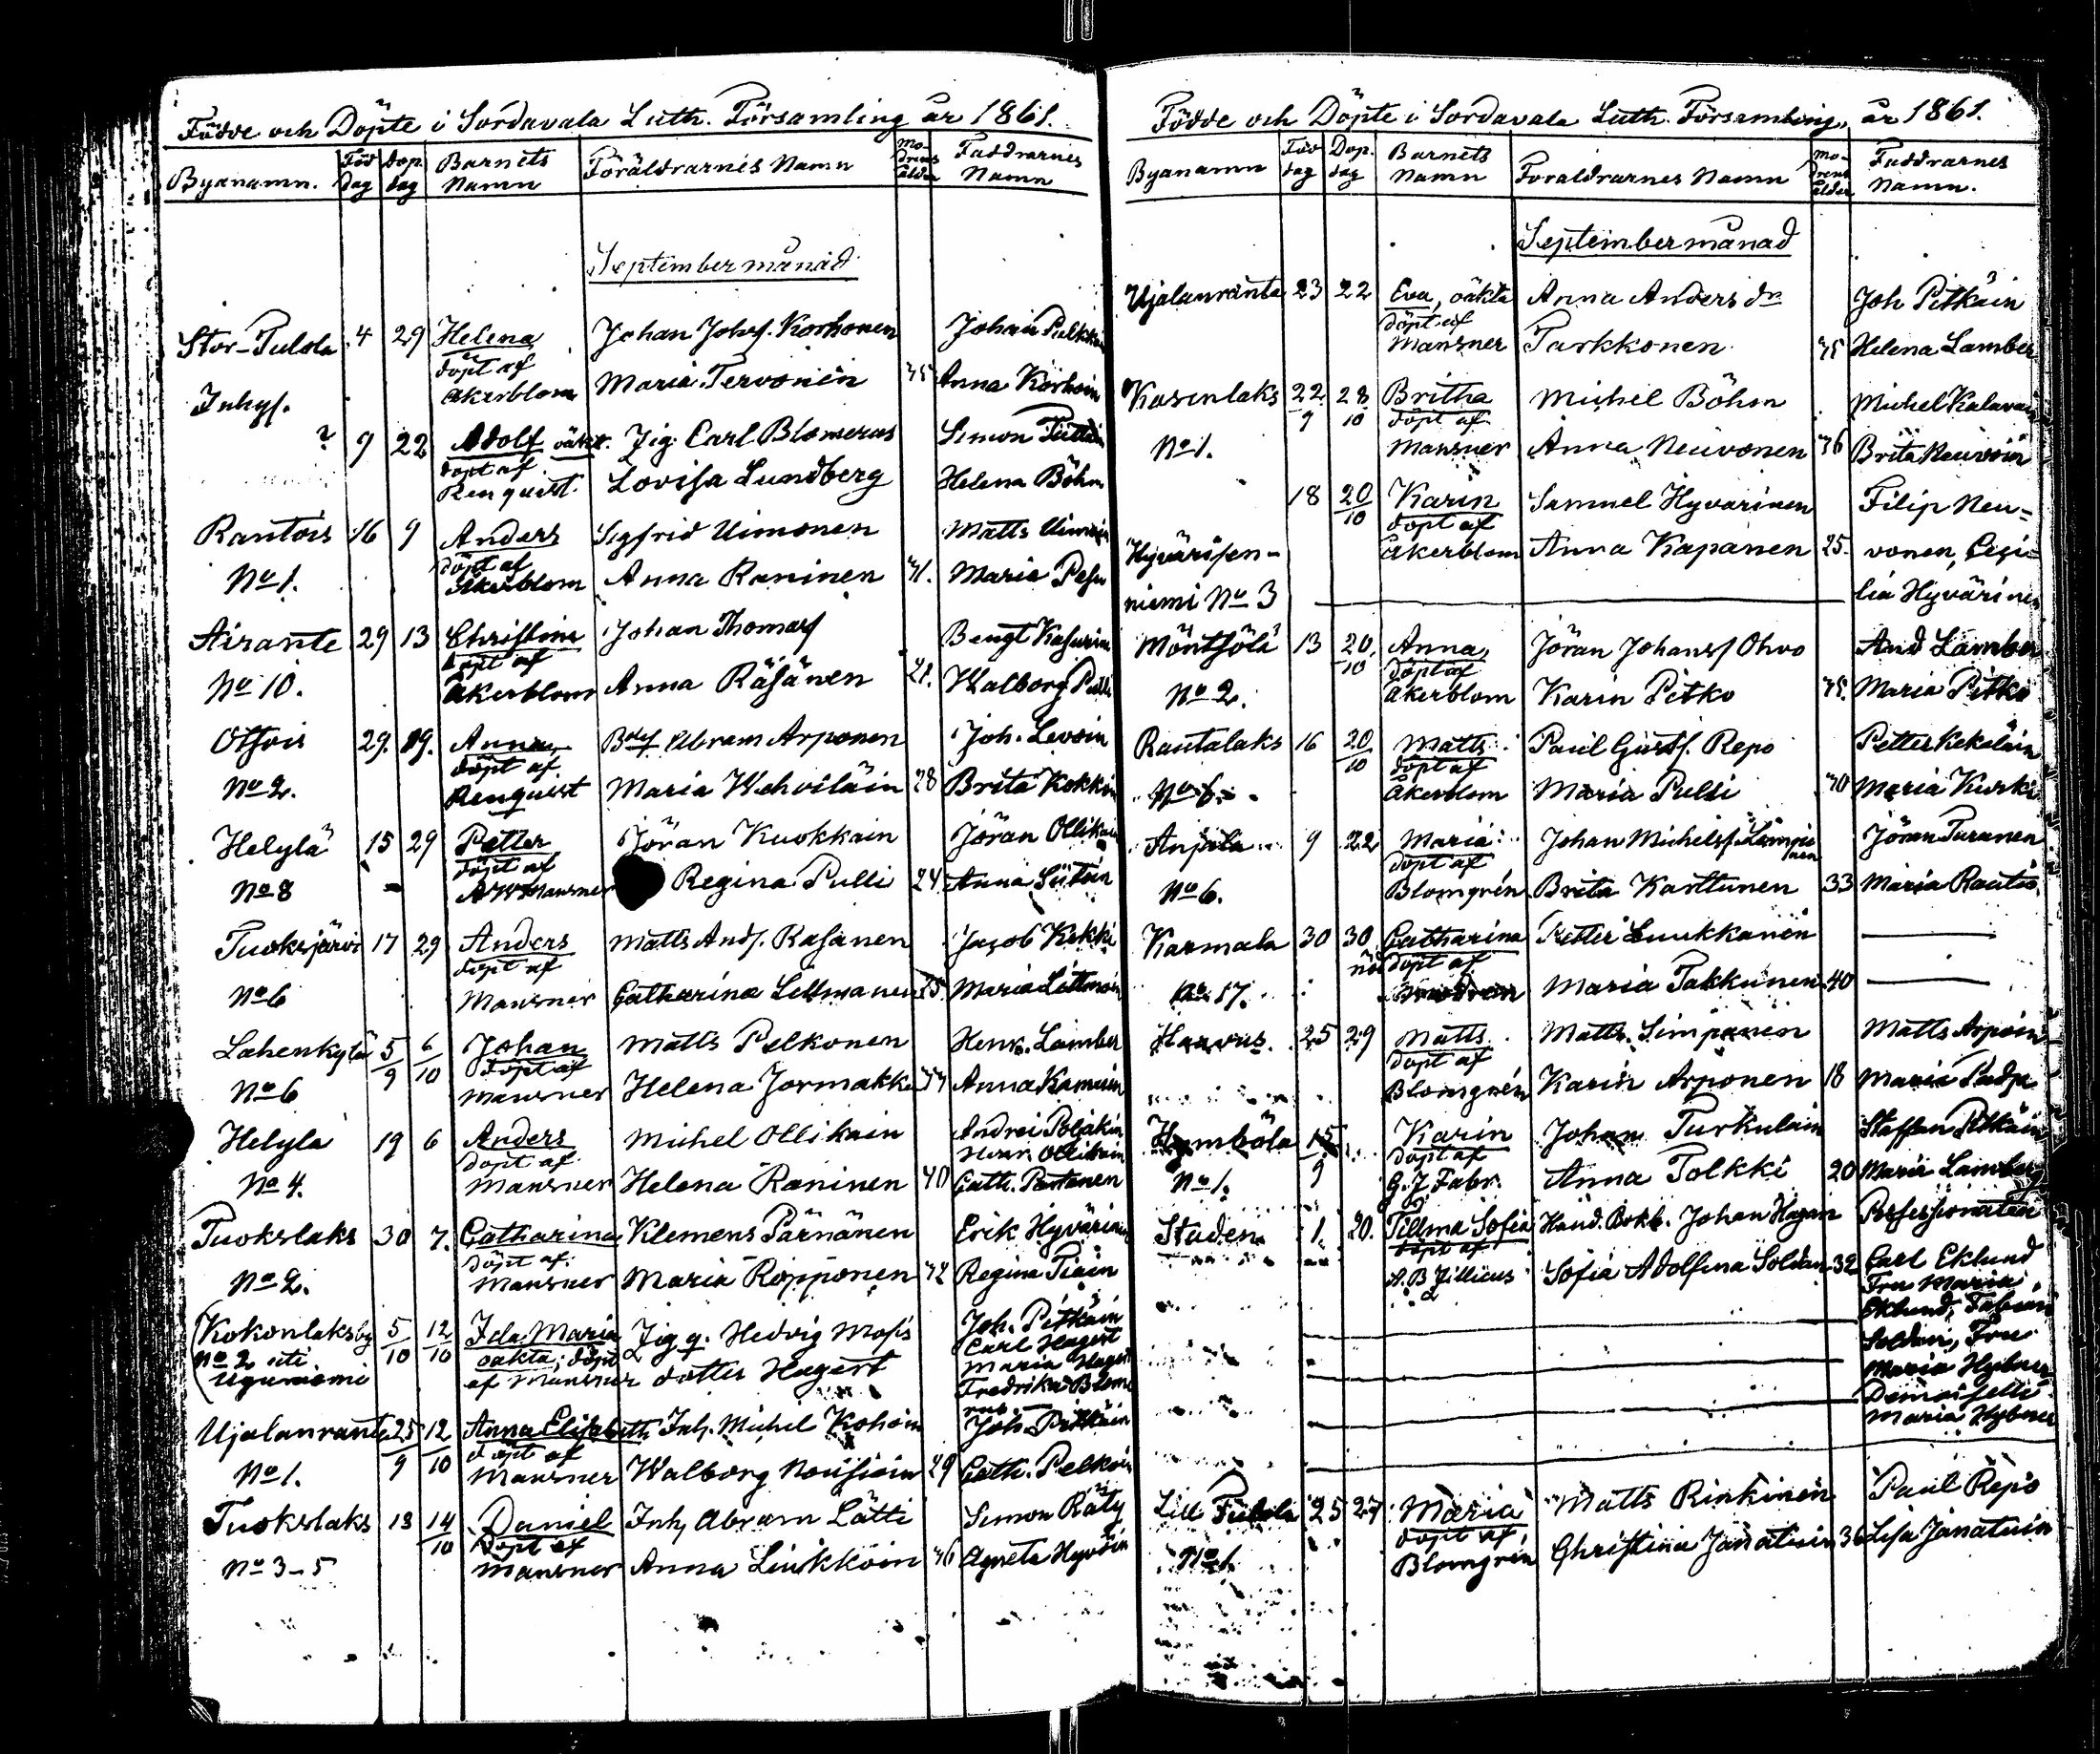 Födde och Döpte i Sordavala Luth. Församling år 1861.
Byanamn. Föd dag Dop dag Barnets Namn Föräldrarnes Namn Modrens ålder Faddrarnes Namn
September månad
Stor-Tulola 4 29 Helena Johan Johs. Korhonen Johan
döpt af
Inhys. Åkerblom Maria Tervonen 35 Anna Korhoin
? 9 22 Adolf oäkt. Jig. Carl Blomerus Simon
döpt af
Renquist Lovisa Lundberg Helena Böhm
Rantois 16 9 Anders Sigfrid Uimonen Matts
döpt af
No 1. Åkerblom Anna Raninen 41. Maria
Airante 29 13 Christina Johan Thomass Bengt Kasurin
döpt af
No 10. Åkerblom Anna Räsänen Walborg
Otsois 29. 29. Anna Abram Arponen Joh. Levoin
döpt af
No 2. Renquist Maria Wehviläin 28 Brita Kokkin
Helylä 15 29 Petter Jöran Kuokkain Jöran Ollikain
döpt af
No 8 Mansner Regina Pulli 24 Anna
Tuoksjärvi 17 29 Anders Matts Ands. Rasanen Jacob Kirkki
döpt af
No 6 Mansner Catharina 35 Maria
Lahenkylä 5/9 6/10 Johan Matts Pelkonen Henr. Lamber
döpt af
No 6 Mansner Helena Jormakka Anna
Helylä 19 6 Anders Michel Ollikain Andrei
döpt af Ollikain
No 4. Mansner Helena Raninen 40 Cath. Partanen
Tuokslaks 30 7. Catharina Klemens Pärnänen Erik Hyvärinen
döpt af
No 2. Mansner Maria Ropponen 42 Regina Piain
Kokonlaks by 5/10 12/10 Ida Maria Jig q. Hedvig Mosis Joh. Pitkäin
No 2 oäkta; döpt Carl Hagert
af Mansner dotter Hagert Maria Hagert
Fredrika
Ujalanranta 25/9 12/10 Anna Elisabeth Inh. Michel Kohoin Joh. Pitkäin
döpt af
No 1. Mansner Walborg 29 Cath. Pelkoin
Tuokslaks 13 14/10 Daniel Inh. Abram Lätti Simon Räty
döpt af
No 3-5 Mansner Anna Liukkoin 36 Agneta
Födde och Döpte i Sordavala Luth. Församling, år 1861.
Byanamn Föd dag Dop. dag Barnets Namn Föraldrarnes Namn Modrens ålder Faddrarnes Namn.
September månad
Ujalanranta 23 22 Eva, oäkta Anna Anders dr Joh Pitkäin
döpt af
Mansner Tarkkonen 35 Helena Lamber
Kasenlaks 22/9 28/10 Britha Michel Böhm Michel
döpt af
No 1. Mansner Anna Neuvonen 36 Brita Neuvoin
18 20/10 Karin Samuel Hyvarinen Filip Neu=
döpt af
Hyvärisen- Åkerblom Anna Kapanen 25. vonen, Ceci=
niemi No 3 lia Hyvärinen
Möntsölä 13 20/10 Anna, Jöran Johanss Ohvo And Lamber
döpt af
No 2. Åkerblom Karin Pitko 35. Maria Pitko
Rautalaks 16 20/10 Matts Paul Gusts. Repo Petter Kekäläin
döpt af
No 6. Åkerblom Maria Pulli 40 Maria Kurki
Anjala 9 22 Maria Johan Michelss. Jöran Turanen
döpt af
No 6. Blomgrén Brita Karttunen 33 Maria Rautio
Karmala 30 30 Catharina Petter Luukkanen
nöd döpt af
No 17. Maria Takkunen 40
Haavus. 25 29 Matts Matts Simpanen Matts Arpoin
döpt af
Blomgrén Karin Arponen 18 Maria
Hymbölä 15/9 Karin Johan Turkulain Staffan Pitkäin
döpt af
No 1. G. J. Fabr. Anna Polkki 20 Maria Lamberg
Staden 1. 20. Tillma Sofia Hand. Bokh. Johan Professionisten
döpt af
A. B. Zillicus Sofia Adolfina Soldan 32 Carl Eklund
Fru Maria
Eklund, Fabian
Soldan, Fru
Maria
Demoiselle
Maria
Lill Tulola 25 27 Maria Matts Rinkinen Paul Repo
döpt af
No 1. Blomgrén Christina Janatuin 36 Lisa Janatuin